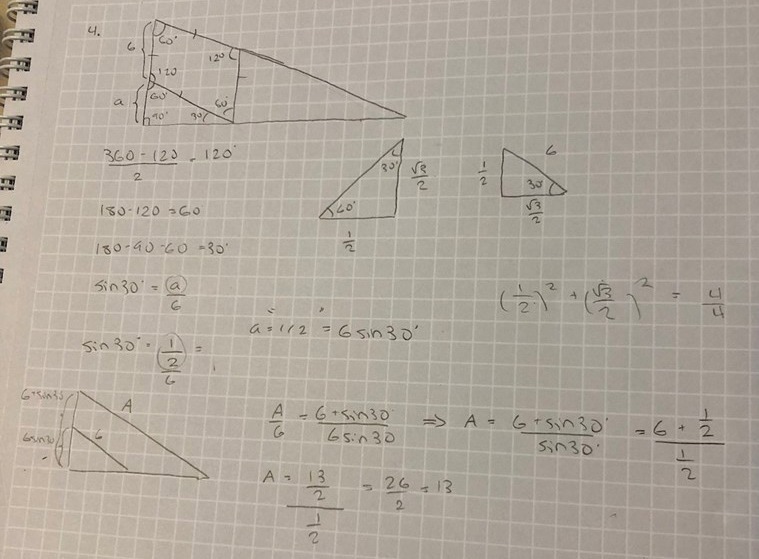 4.
6 60° 120°
120
a 60° 60°
90° 30°
(360 - 120)/2 = 120°
30° √3/2 60° 1/2
6 1/2 30 √3/2
180 - 120 = 60
180 - 90 - 60 = 30°
sin30° = a/6
(1/2)² + (√3/2)² = 4/4
a = 1/2 = 6 sin30°
sin30° = (1/2)/6 =
6+sin30 A
6sin30 6
A/6 = (6 + sin30°)/(6 sin30) ⇒ A = (6 + sin30°)/(sin30°) = (6 + 1/2)/(1/2)
A = (13/2)/(1/2) = 26/2 = 13